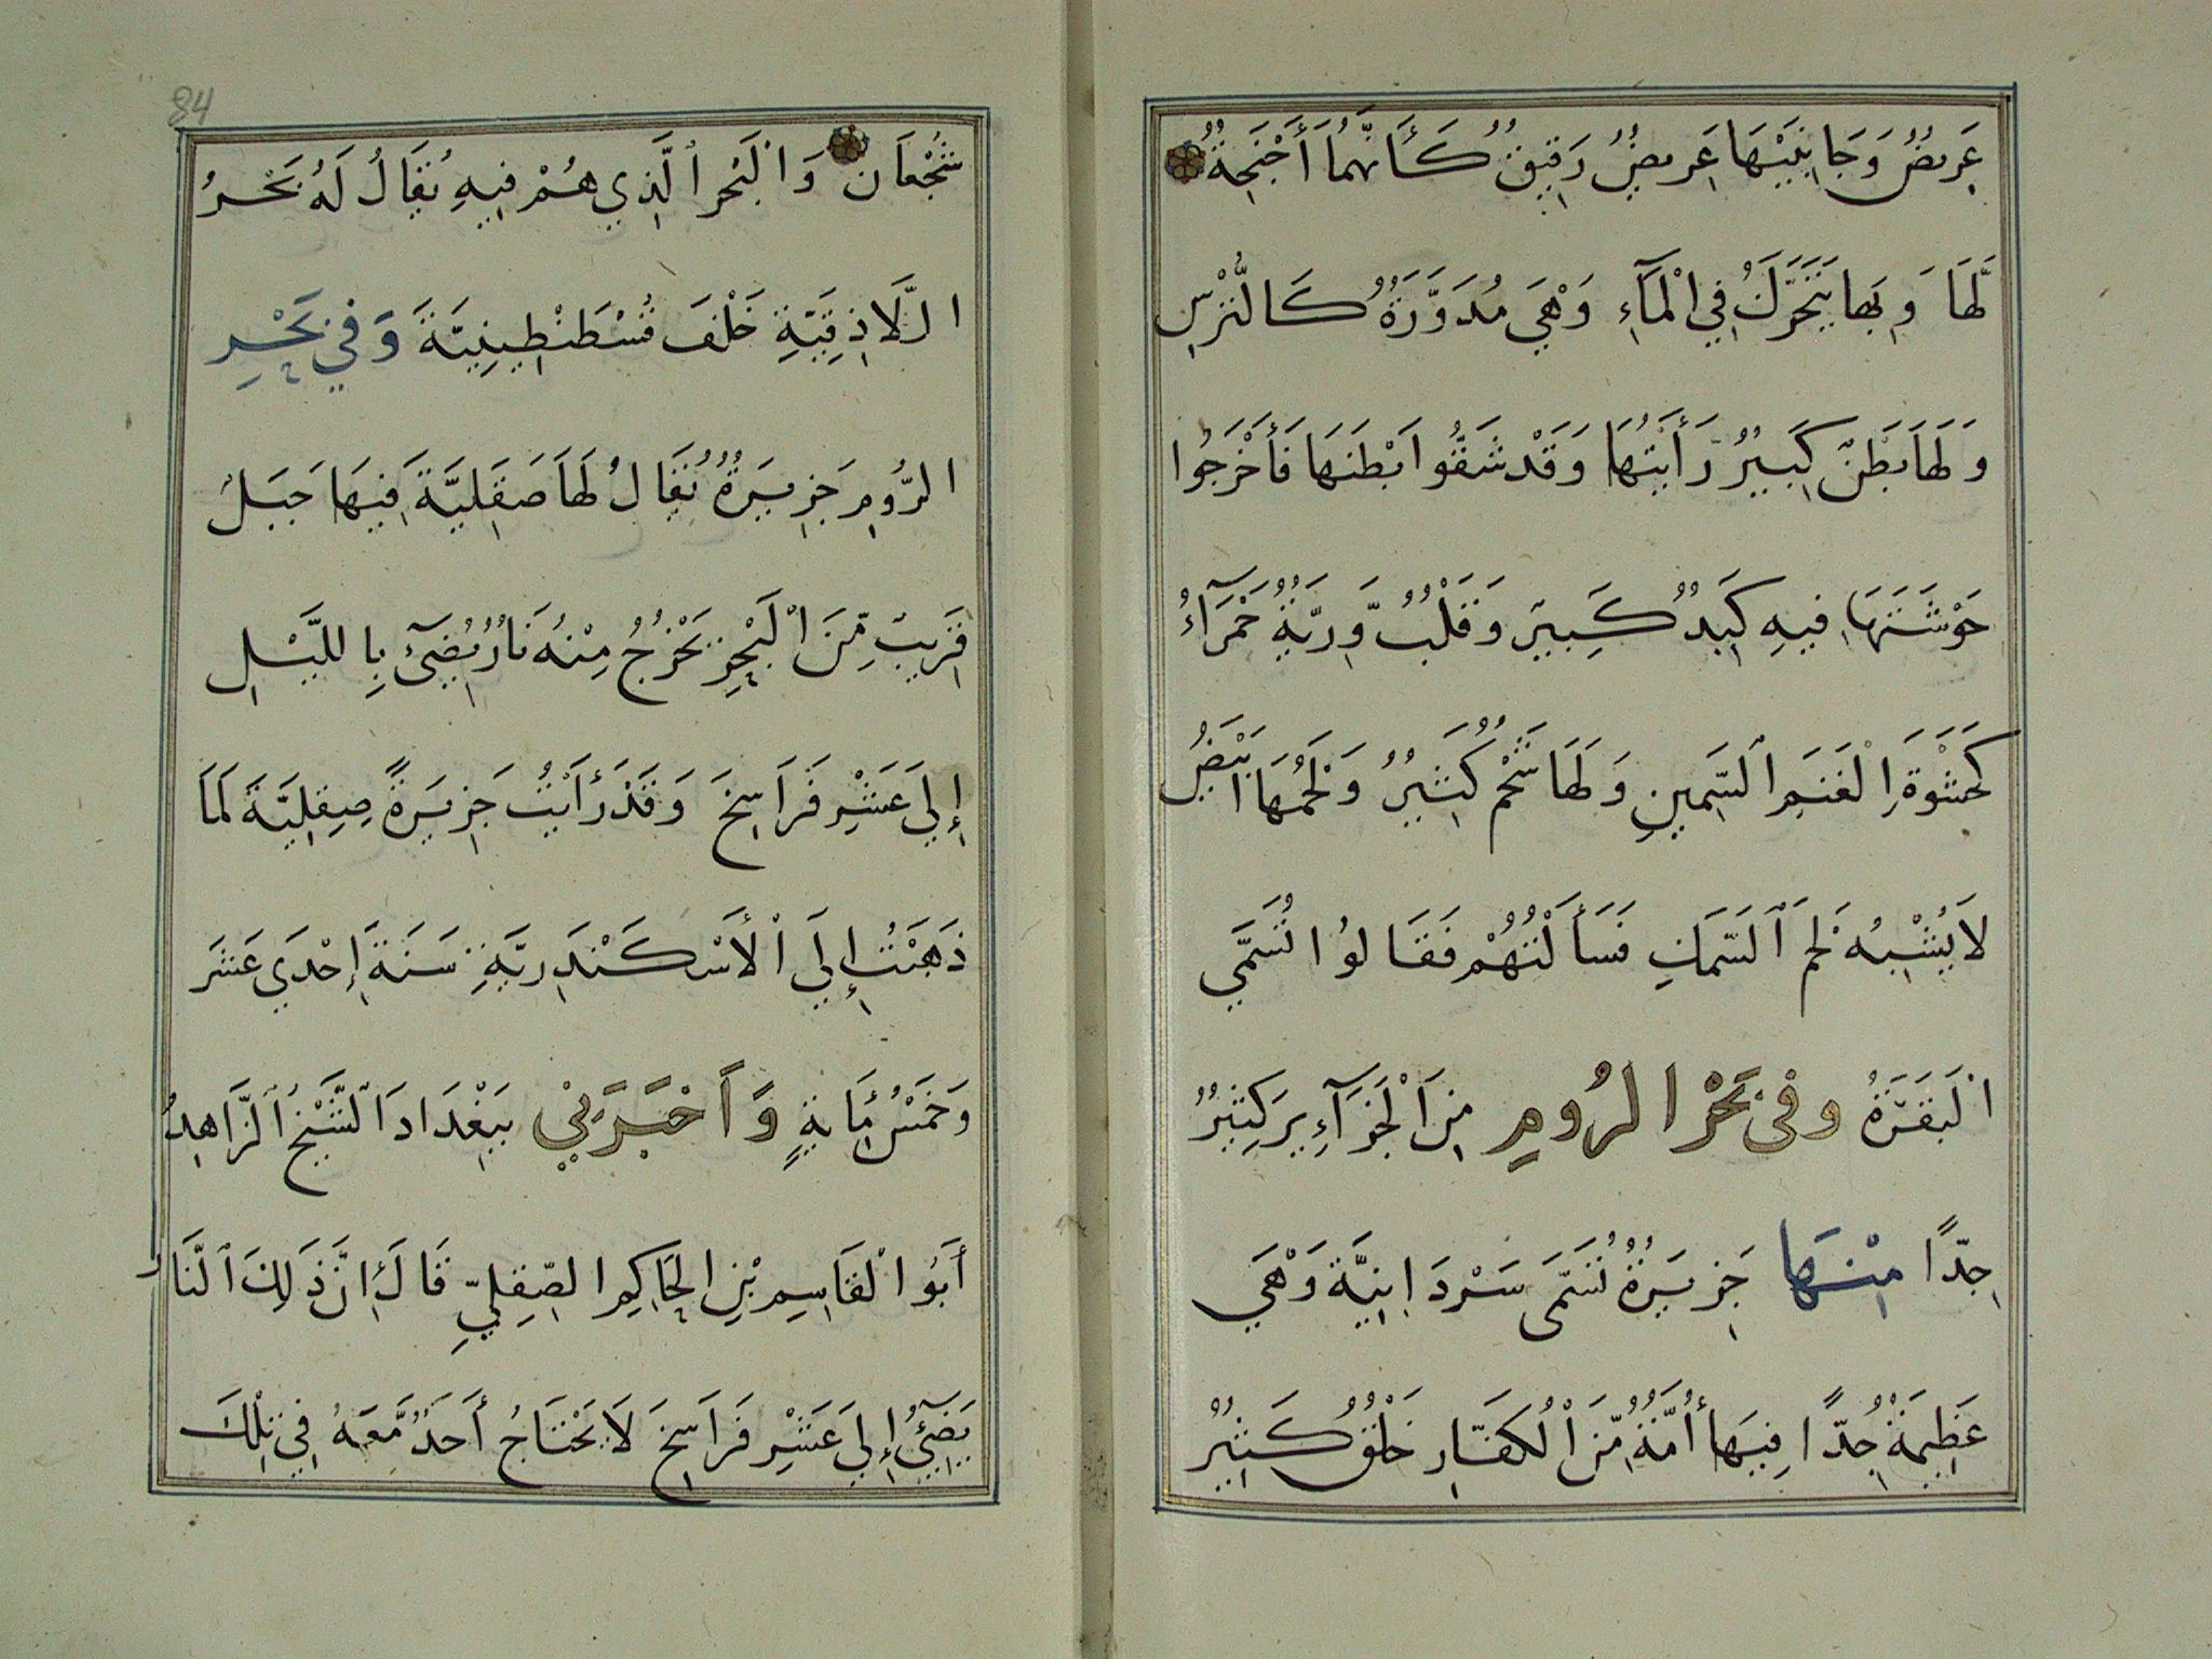 عَرِيضٌ وَجَانِبَيْهَا عَرِيضٌ رَقِيقٌ كَأَنَّهُمَا أَجْنِحَةٌ
لَّهَا وَبِهَا يَتَحَرَّكُ فِي الْمَآءِ وَهْيَ مُدَوَّرَةٌ كَالتُّرْسِ
وَلَهَا بَطْنٌ كَبِيرٌ رَأَيْتُهَا وَقَدْ شَقُّوا بَطْنَهَا فَأَخْرَجُوا
حَوْشَتَهَا فِيهِ كَبِدٌ كَبِيرٌ وَقَلْبٌ وَّرِيَّةٌ حَمْرَآءُ
كَحَشْوَةِ الْغَنَمِ السَّمِينِ وَلَهَا شَحْمٌ كَثِيرٌ وَلَحْمُهَا ابْيَضُ
لَا يُشْبِهُ لَحْمَ السَّمَكِ فَسَأَلْتُهُمْ فَقَالُوا تُسَمَّي
الْبَقَرَةُ وفى بَحْرِ الرُومِ مِنَ الْجَزَآءِيرِ كَثِيرٌ
جِدًّا مِنْهَا جَزِيرَةٌ تُسَمَّى سَرْدَانِيَّةَ وَهْيَ
عَظِيمَةٌ جِدًّا فِيهَا أُمَّةٌ مِّنَ الْكُفَّارِ خَلْقٌ كَثِيرٌ
84
شُجْعَان وَالْبَحْرِ الَّذِي هُمْ فِيهِ يُقَالُ لَهُ بَحْرُ
الَّلاذِقِيَّةِ خَلْفَ قُسْطَنْطِينِيَّةَ وَفي بَحْرِ
الرُّومِ جَزِيرَةٌ يُقَالُ لَهَا صَقَلِيَّةَ فِيهَا جَبَلٌ
قَرِيبٌ مِّنَ الْبَحْرِ يَخْرُجُ مِنْهُ نَارٌ يُضِيَٓئُ بِاللَّيْلِ
إِلَي عَشْرِ فَرَاسِخَ وَقَدْ رَأَيْتُ جَزِيرَةً صِقِلِيَّةَ لَمَا
ذَهَبْتُ إِلَي الْأَسْكَنْدَرِيَّةِ سَنَةَ إِحْدَي عَشَرَ
وَخَمْسُ مِأَيةٍ وَأَخْبَرَنِي بِبَغْدَادَ الشَّيْخُ الزَّاهِدُ
أَبُوا الْقَاسِمِ بْنِ الحَاكِمِ الصِّقِلِيِّ قَالَ إِنَّ ذَلِكَ النَّارَ
يَضِيَٓئُ إِلَي عَشْرِ فَرَاسِخَ لَا يَحْتَاجُ أَحَدٌ مَّعَهُ فِي تِلْكَ